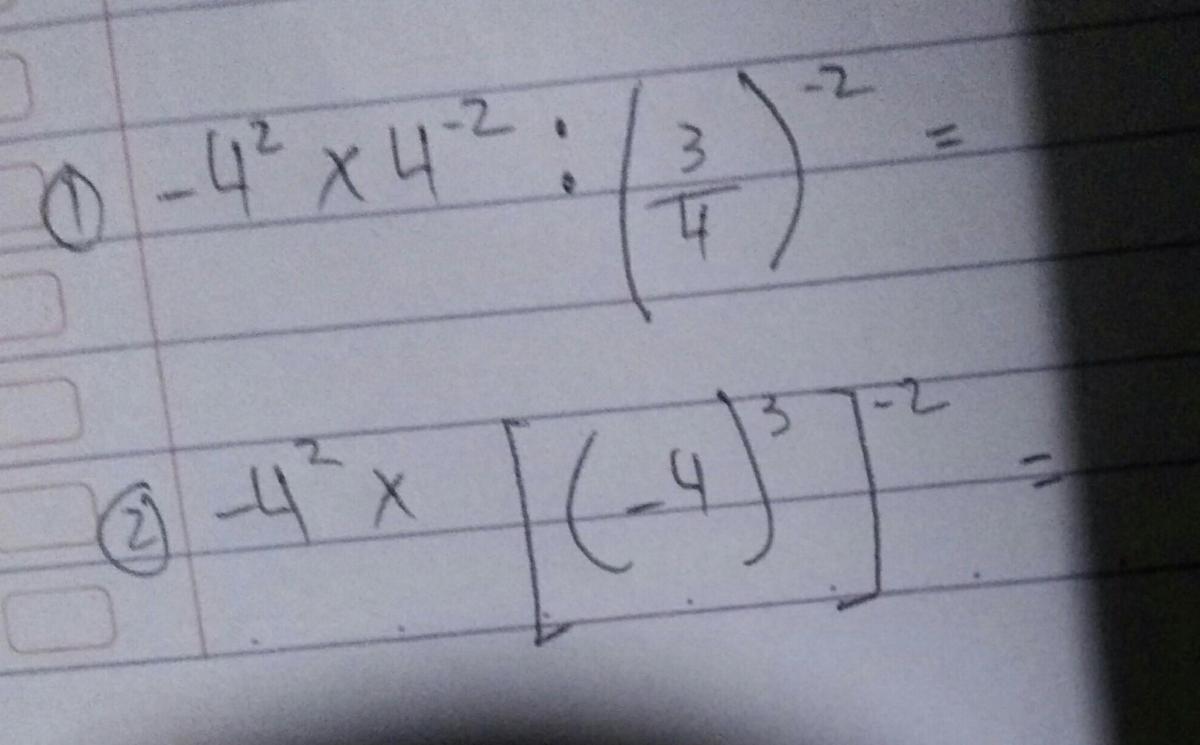 ① -4² x 4⁻² : (3/4)⁻² =
② -4² x [(-4)³]⁻² =